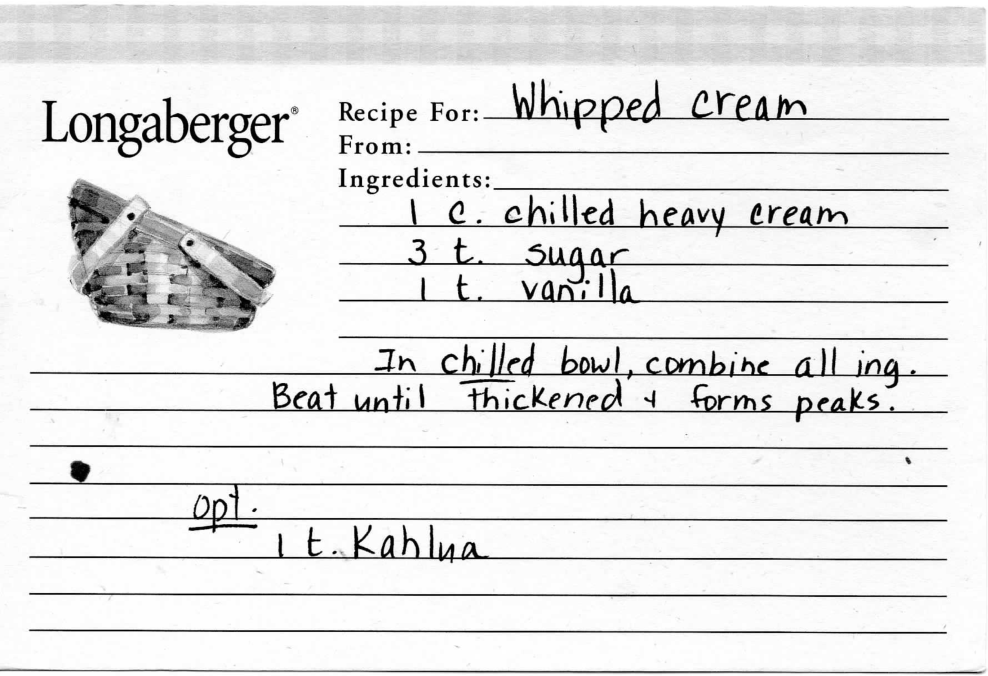 Longaberger®
Recipe For: Whipped cream
From:
Ingredients:
1 c. chilled heavy cream
3 t. sugar
1 t. vanilla
In chilled bowl, combine all ing.
Beat until thickened + forms peaks.
opt.
1 t. Kahlua